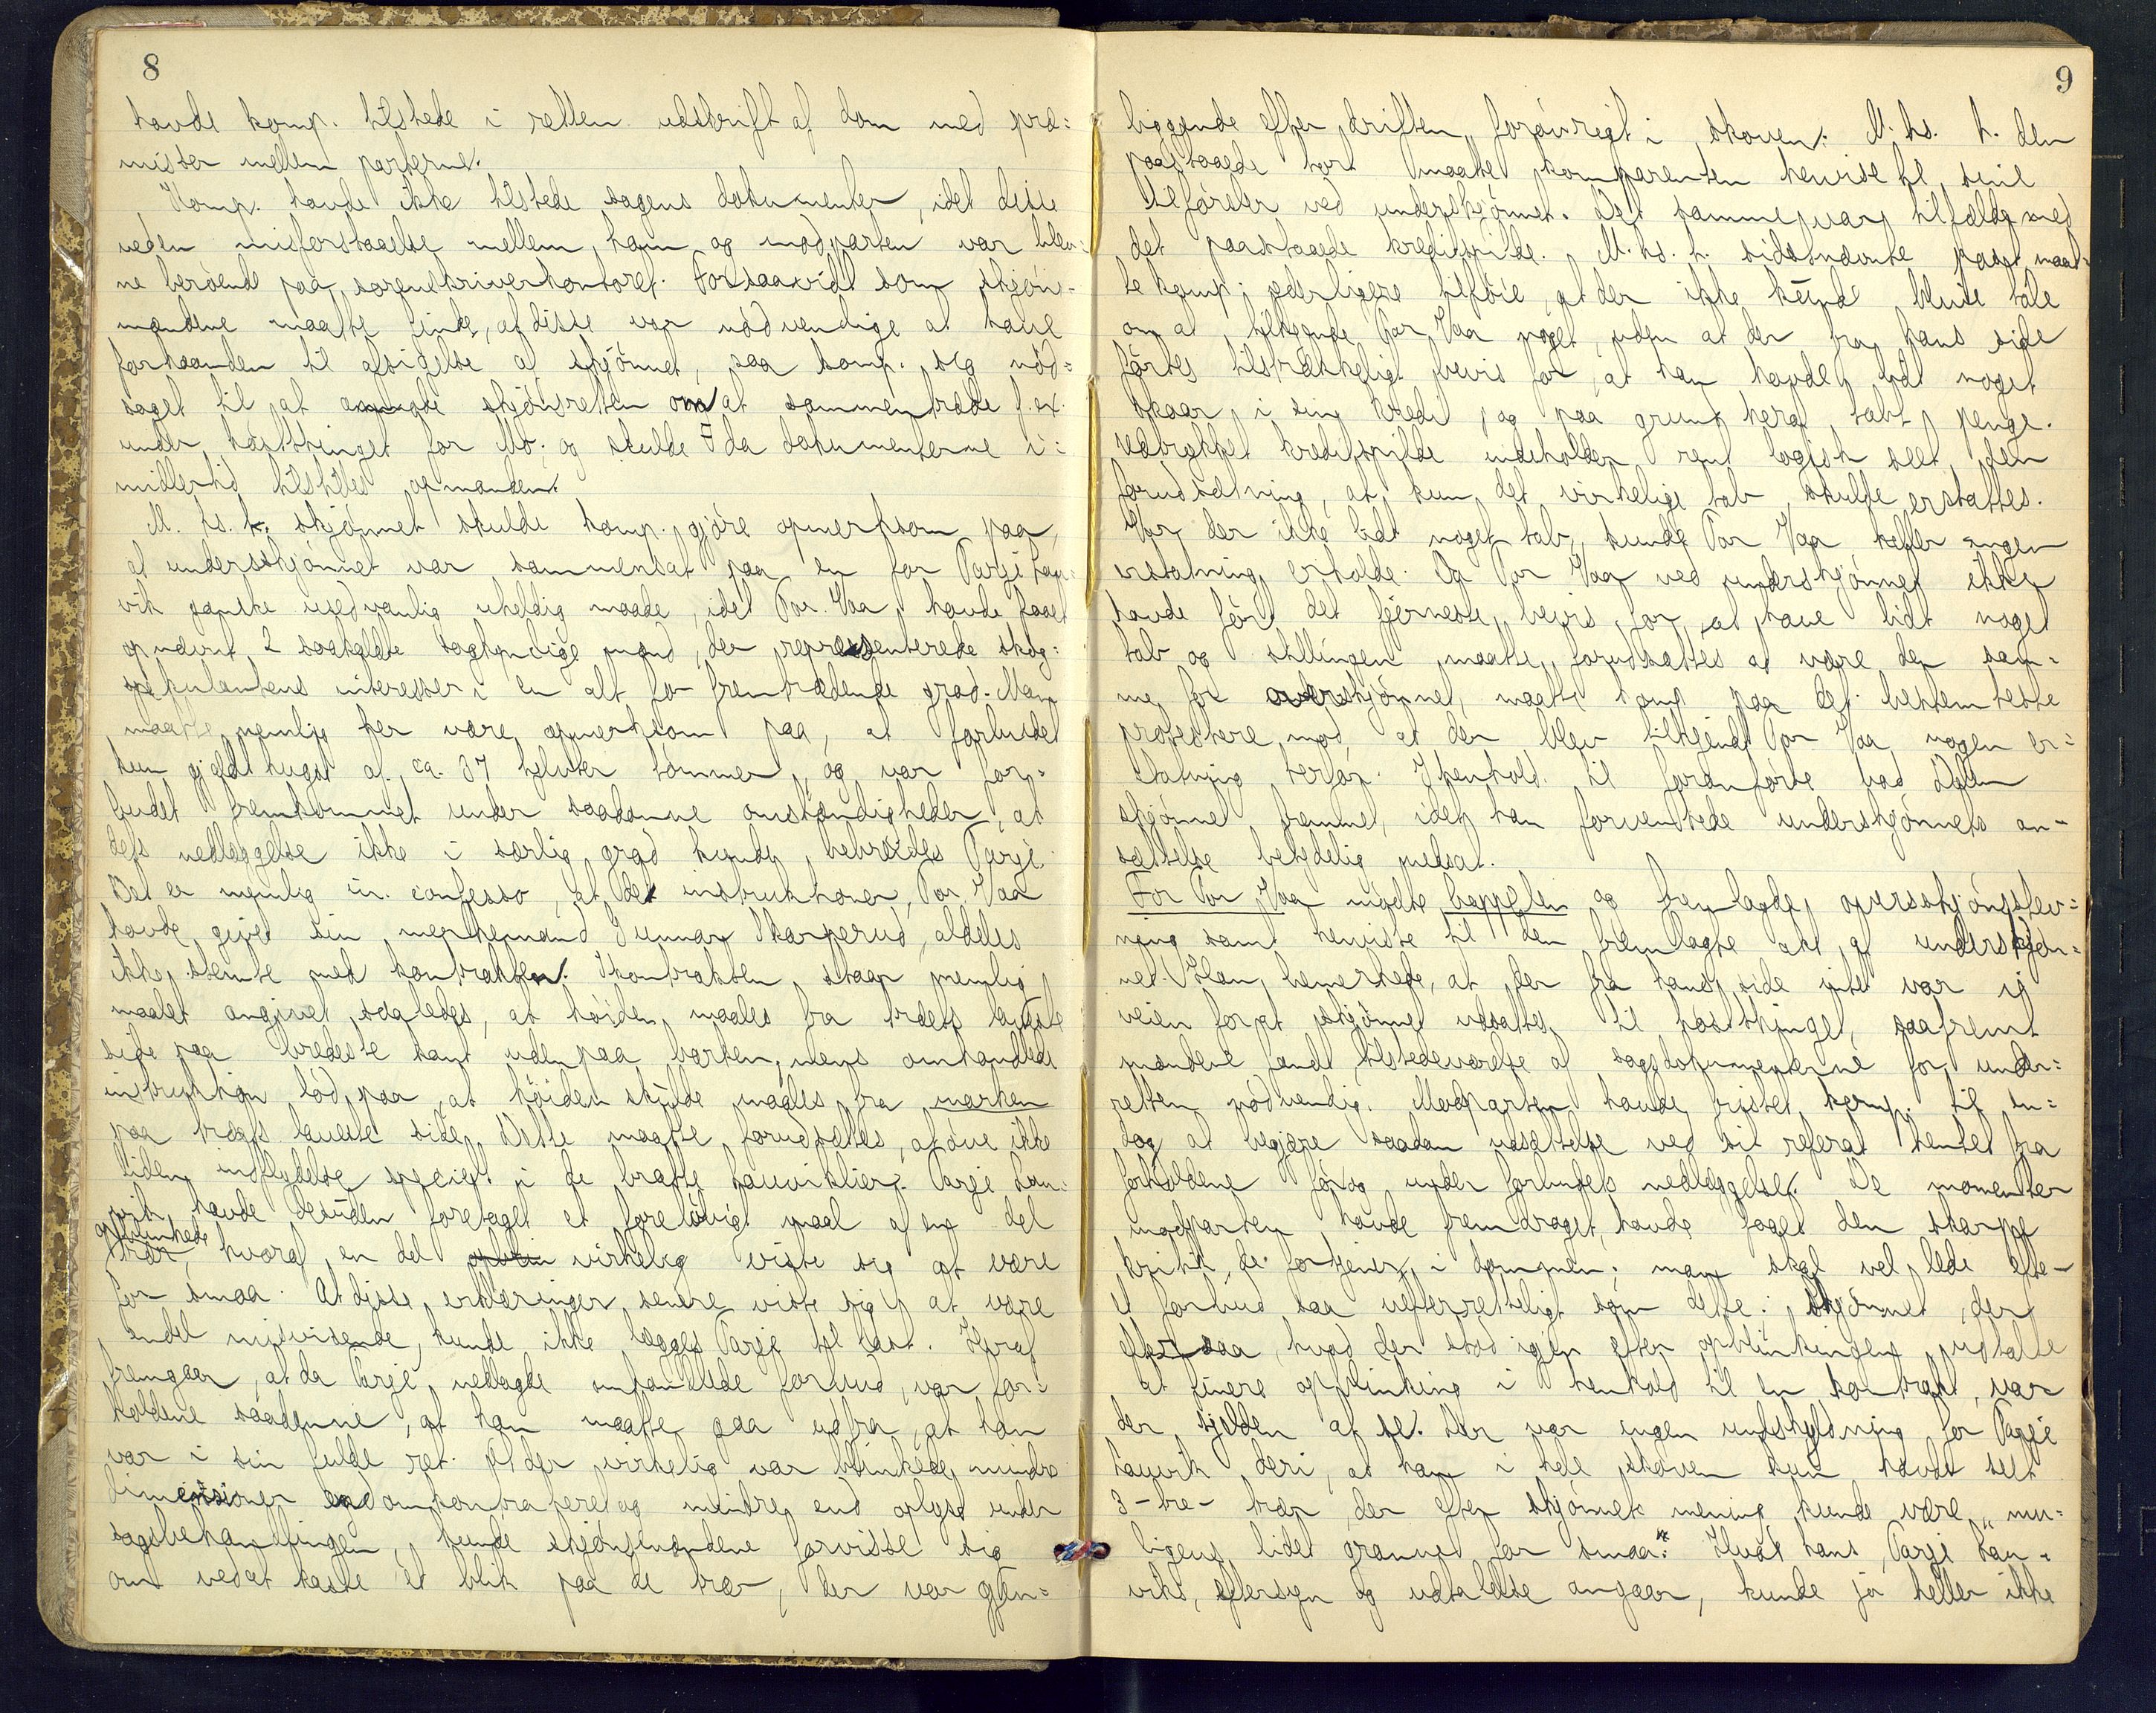 8
havde komp. tilstede i retten udskrift af dom med præ=
misser mellem parterne.
Komp. havde ikke tilstede sagens dokumenter, idet disse
ved en misforstaaelse mellem ham og modparten var blev=
ne beroende paa sorenskriverkontoret. Forsaavidt som skjøns=
mændene maatte finde, at disse var nødvendige at have
forhaanden til afsigelse af skjønnet, saa komp. sig nød=
saget til at anmode skjønsretten om at sammentræde f. ex.
under høstthinget for Mo; og skulde da dokumenterne i=
midlertid tilstilles opmanden.
M. hs. t. skjønnet skulde komp. gjøre opmerksom paa,
at underskjønnet var sammensat paa en for Tarje Hau=
vik ganske usedvanlig uheldig maade, idet Tor Vaa havde faaet
opnævnt 2 saakaldte sagkyndige mænd, der repræsenterede skog=
spekulantens interesser i en alt for fremtrædende grad. Man
maatte nemlig her være opmerksom paa, at forbudet
kun gjaldt hugst af ca. 37 tylvter tømmer, og var for=
budet fremkommet under saadanne omstændigheder, at
dets nedlæggelse ikke i særlig grad kunde bebreides Tarje.
Det er nemlig in confesso, at de instruktioner, Tor Vaa
havde givet sin merkemand Gunnar Skarperud, aldeles
ikke stemte med kontrakten. I kontrakten staar nemlig
maalet angivet saaledes, at høiden maales fra træets laveste
side paa bredeste kant udenpaa barken, mens omhandlede
instruktion lød paa, at høiden skulde maales fra marken
paa træets laveste side. Dette maatte forudsættes, at øve ikke
liden indflydelse specielt i de bratte Hauviklier. Tarje Hau=
vik havde desuden foretaget et foreløbigt maal af en del
opblinkede
trær, hvoraf en del virkelig viste sig at være
for smaa. At disse erklæringer senere viste sig at være
endel misvisende, kunde ikke lægges Tarje til last. Heraf
fremgaar, at da Tarje nedlagde omhandlede forbud, var for=
holdene saadanne, at han maatte gaa ud fra, at han
var i sin fulde ret. At der virkelig var blinkede mindre
dimensioner end omkontraheret og mindre end oplyst under
sagsbehandlingen, kunde skjønsmændene forvisse sig
om ved at kaste et blik paa de trær, der var gjen=

9
liggende efter driften forøvrigt i skoven. M. hs. t. den
paastaaede maatte komparenten henvise til sine
tilførsler ved underskjønnet. Det samme var tilfældet med
det paastaaede kreditspilde. M. hs. t. sidstnævnte post maat=
te komp. yderligere tilføie, at der ikke kunde blive tale
om at tilkjende Tor Vaa noget, uden at der fra hans side
førtes tilstrækkeligt bevis for, at han havde lidt noget
skaar i sin kredit og paa grund heraf tabt penge.
Udtrykket kreditspilde indeholder rent logisk seet den
forudsætning, at kun det virkelige tab skulde erstattes.
Var der ikke lidt noget tab, kunde Tor Vaa heller ingen
erstatning erholde. Da Tor Vaa ved underskjønnet ikke
havde ført det fjerneste bevis for at have lidt noget
tab og stillingen maatte forudsættes at være den sam=
me for overskjønnet, maatte komp. paa det bestemteste
protestere mod, at der blev tilkjendt Tor Vaa nogen er=
statning herfor. I henhold til foranførte bad Dølen
skjønnet fremmet, idet han forventede underskjønnets an=
sættelse betydelig nedsat.
For Tor Vaa mødte Cappelen og fremlagde overskjønsstev=
ning samt henviste til den fremlagte akt af underskjøn=
net. Han bemerkede, at der fra hans side intet var i
veien for at skjønnet udsattes til høstthinget, saafremt
mændene fandt tilstedeværelse af sagsdokumenterne for under=
retten nødvendig. Modparten havde fristet komp. til en=
dog at begjære saadan udsættelse ved sit referat hentet fra
forholdene før og under forbudets nedlæggelse. De momenter
modparten havde fremdraget, havde faaet den skarpe
kritik, de fortjener, i dommen; man skal vel lede efter
et forbud saa uefterretteligt som dette; skjønnet, der
eftersaa, hvad der stod igjen efter opblinkingen, udtalte
at finere opblinking i henhold til en kontrakt, var
der sjelden at se. Der var ingen undskyldning for Tarje
Hauvik deri, at han i hele skoven kun havde seet
3-tre- trær, der efter skjønnets mening kunde være „mu=
ligens lidet grannet for smaa." Hvad hans, Tarje Hau=
viks, eftersyn og udtalelse angaar, kunde jo heller ikke